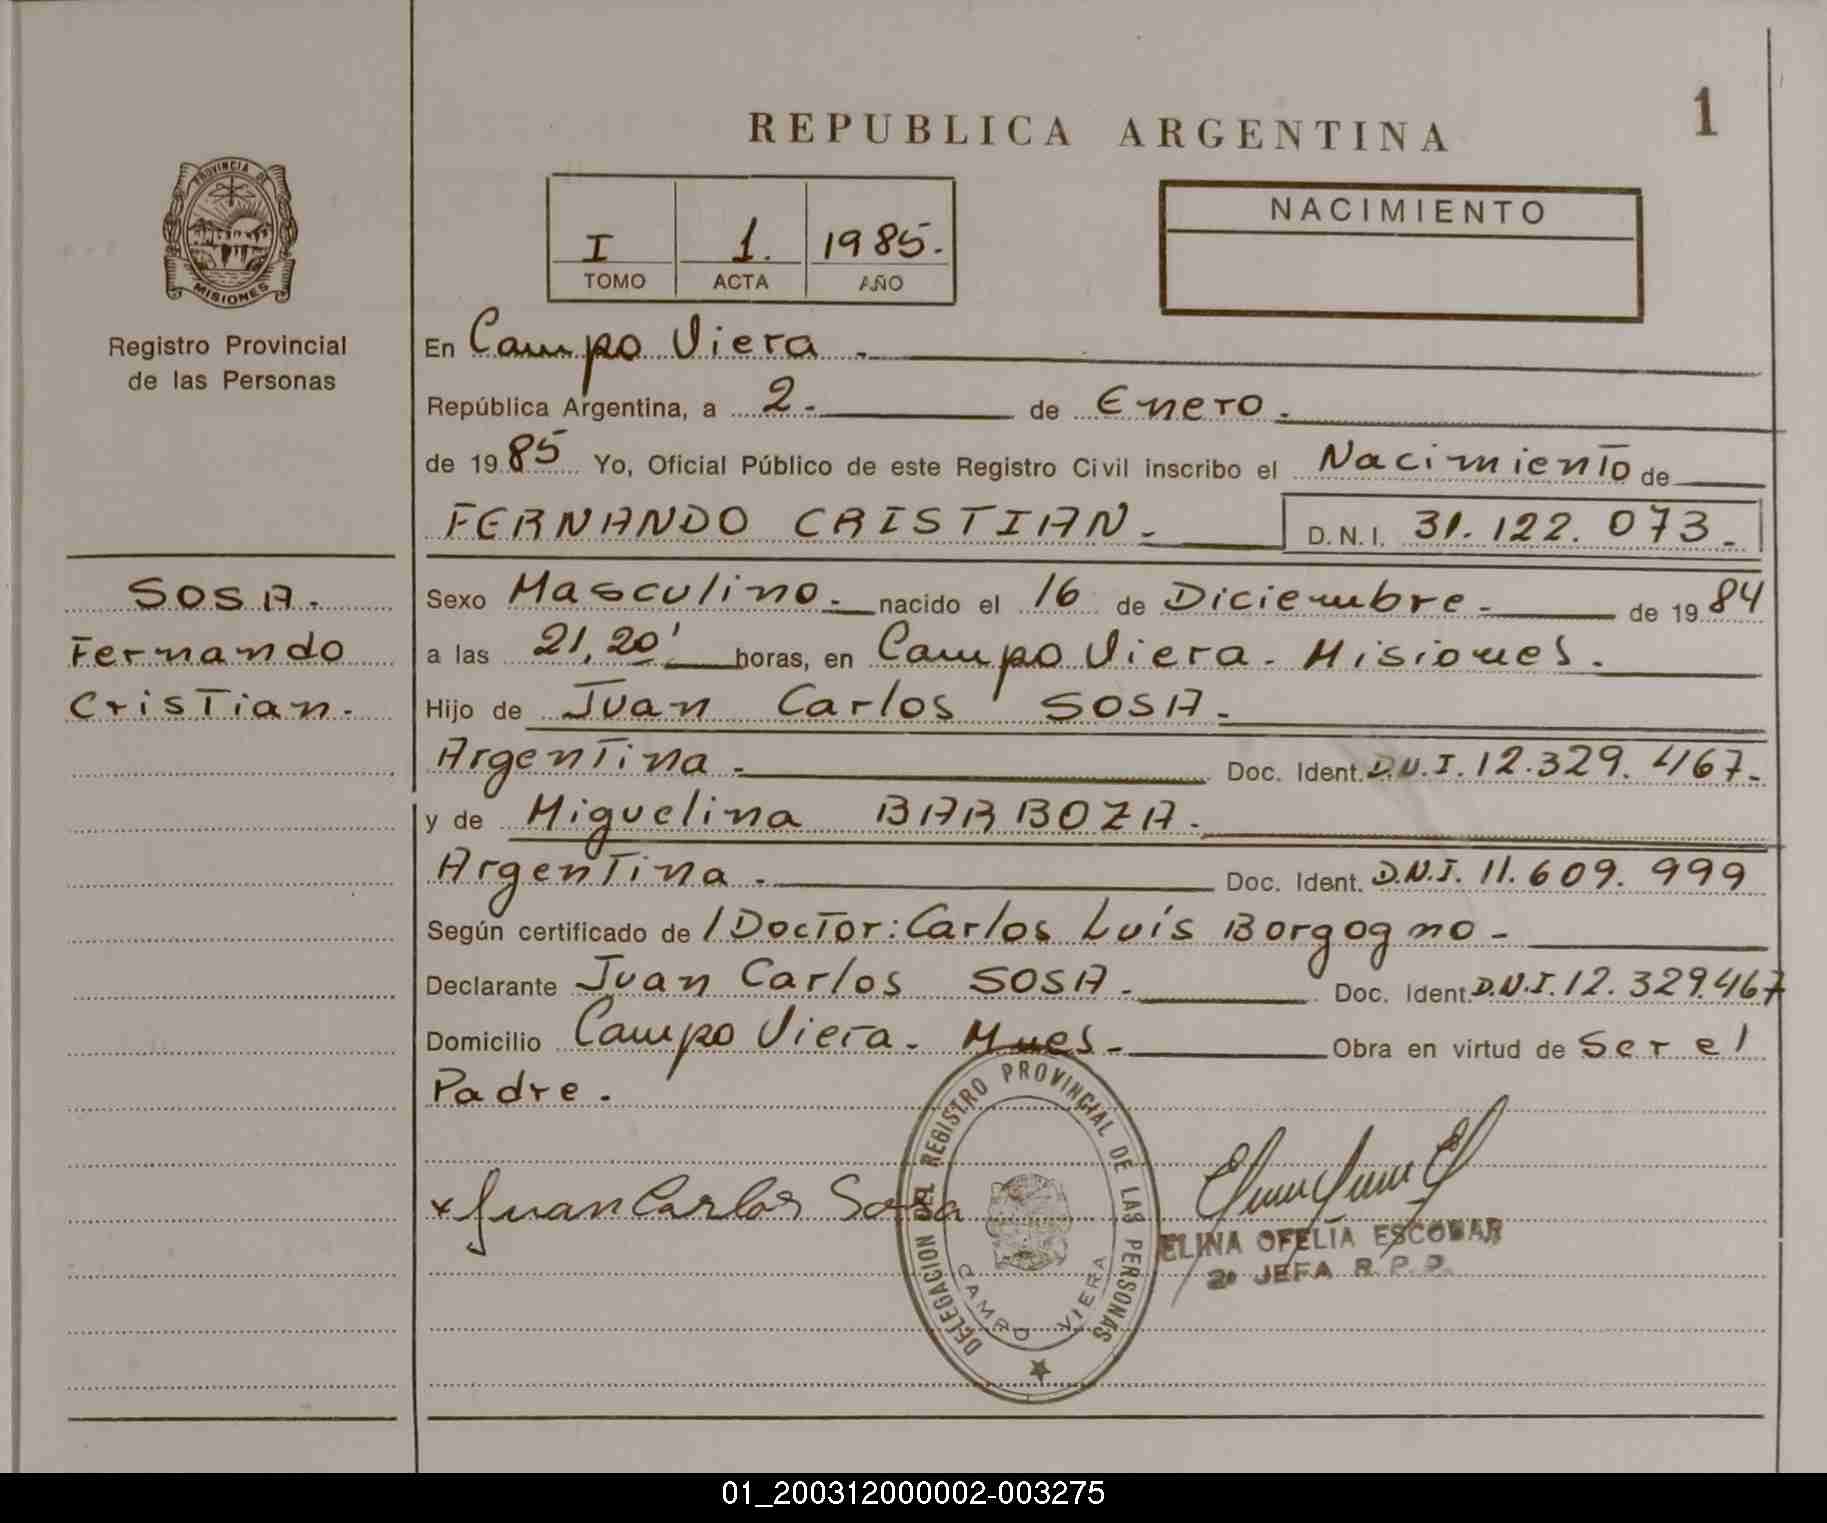 REPUBLICA ARGENTINA
1
PROVINCIA DE
MISIONES
Registro Provincial
de las Personas
I 1. 1985.
TOMO ACTA AÑO
NACIMIENTO
En Campo Viera.
República Argentina, a 2.- de Enero.
de 1985 Yo, Oficial Público de este Registro Civil inscribo el Nacimiento de
FERNANDO CRISTIAN.- D.N.I. 31.122.073.-
SOSA.
Fernando
Cristian.
Sexo Masculino.- nacido el 16 de Diciembre.- de 1984
a las 21,20' horas, en Campo Viera. Misiones.
Hijo de Juan Carlos SOSA.-
Argentina.- Doc. Ident. D.N.I. 12.329.467.-
y de Miguelina BARBOZA.-
Argentina.- Doc. Ident. D.N.I. 11.609.999
Según certificado de / Doctor: Carlos Luís Borgogno-
Declarante Juan Carlos SOSA.- Doc. Ident. D.N.I. 12.329.467
Domicilio Campo Viera. Mnes.- Obra en virtud de Ser el
Padre.
x Juan Carlos Sosa
DELEGACION DEL REGISTRO PROVINCIAL DE LAS PERSONAS
CAMPO VIERA
ELINA OFELIA ESCOBAR
2º JEFA R.P.P.
01_200312000002-003275